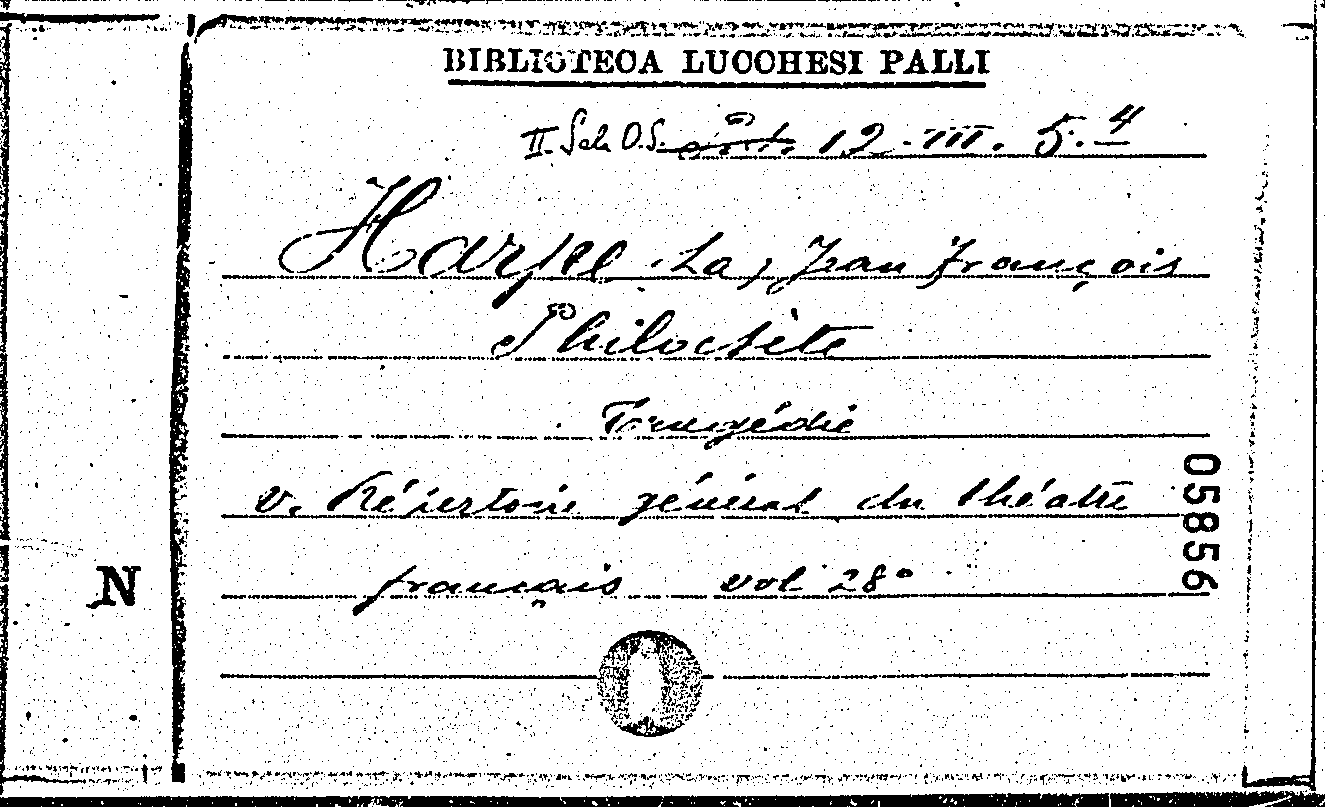 BIBLIOTECA LUCCHESI PALLI
II Sala O.S. 12. III. 5.4
Harpe La, Jean François
Philoctète
Tragédie
v. Répertoire général du théatre
français vol 28°
05856
N